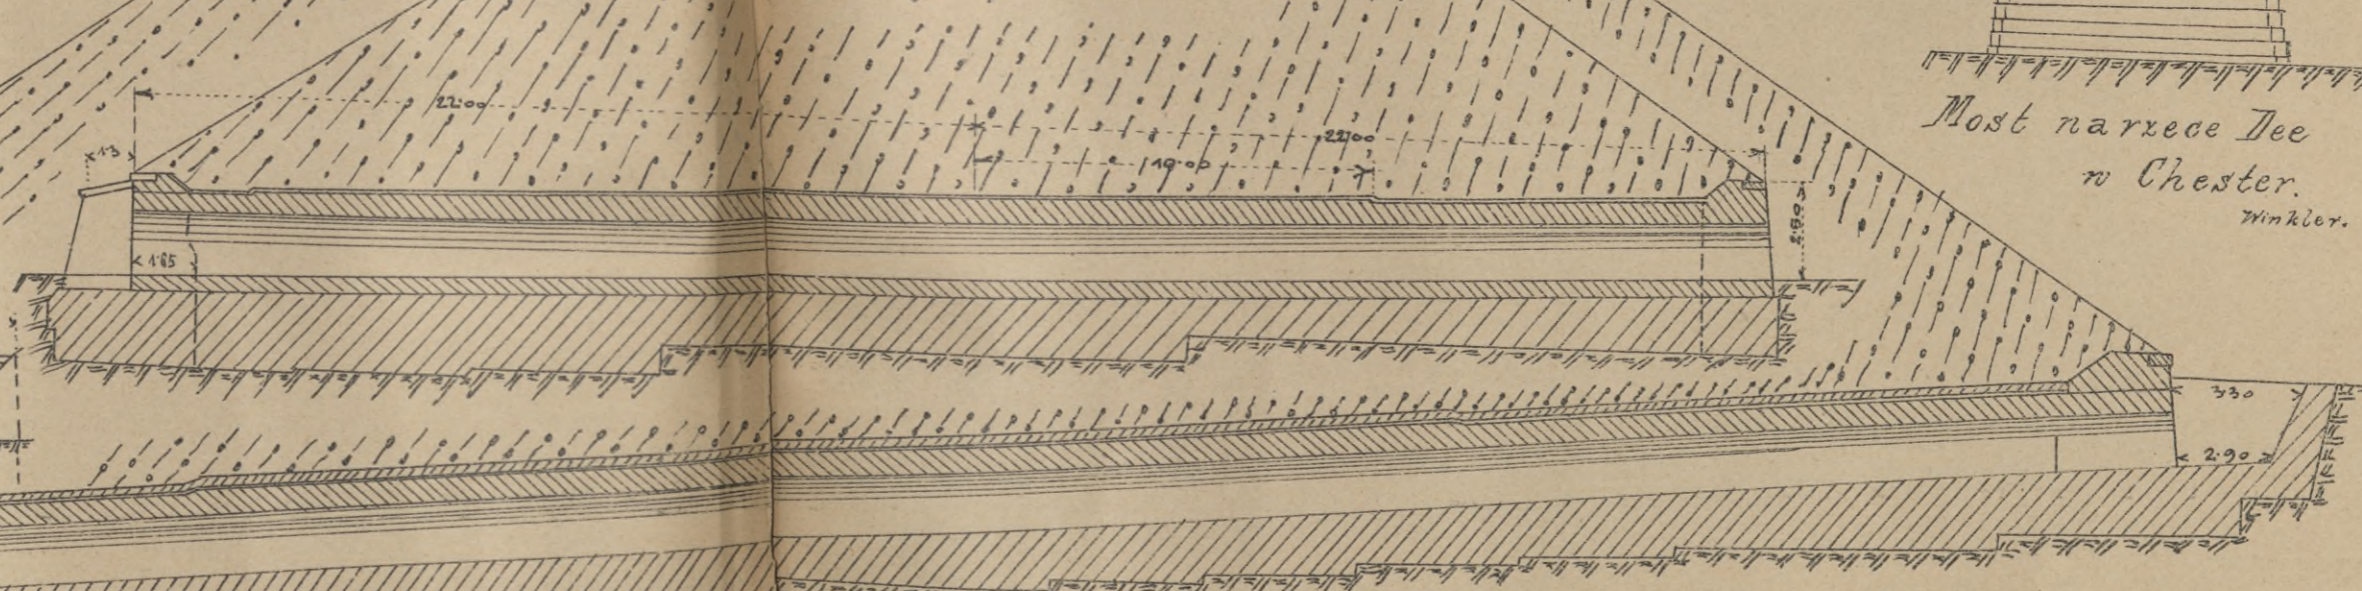 22·00
22·00
1·3
10·00
2·50
1·65
Most na rzece Dee
w Chester.
Winkler.
3·30
2·90